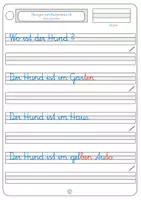 Wo ist der Hund?
Der Hund ist im Garten.
Der Hund ist im Haus.
Der Hund ist im gelben Auto.